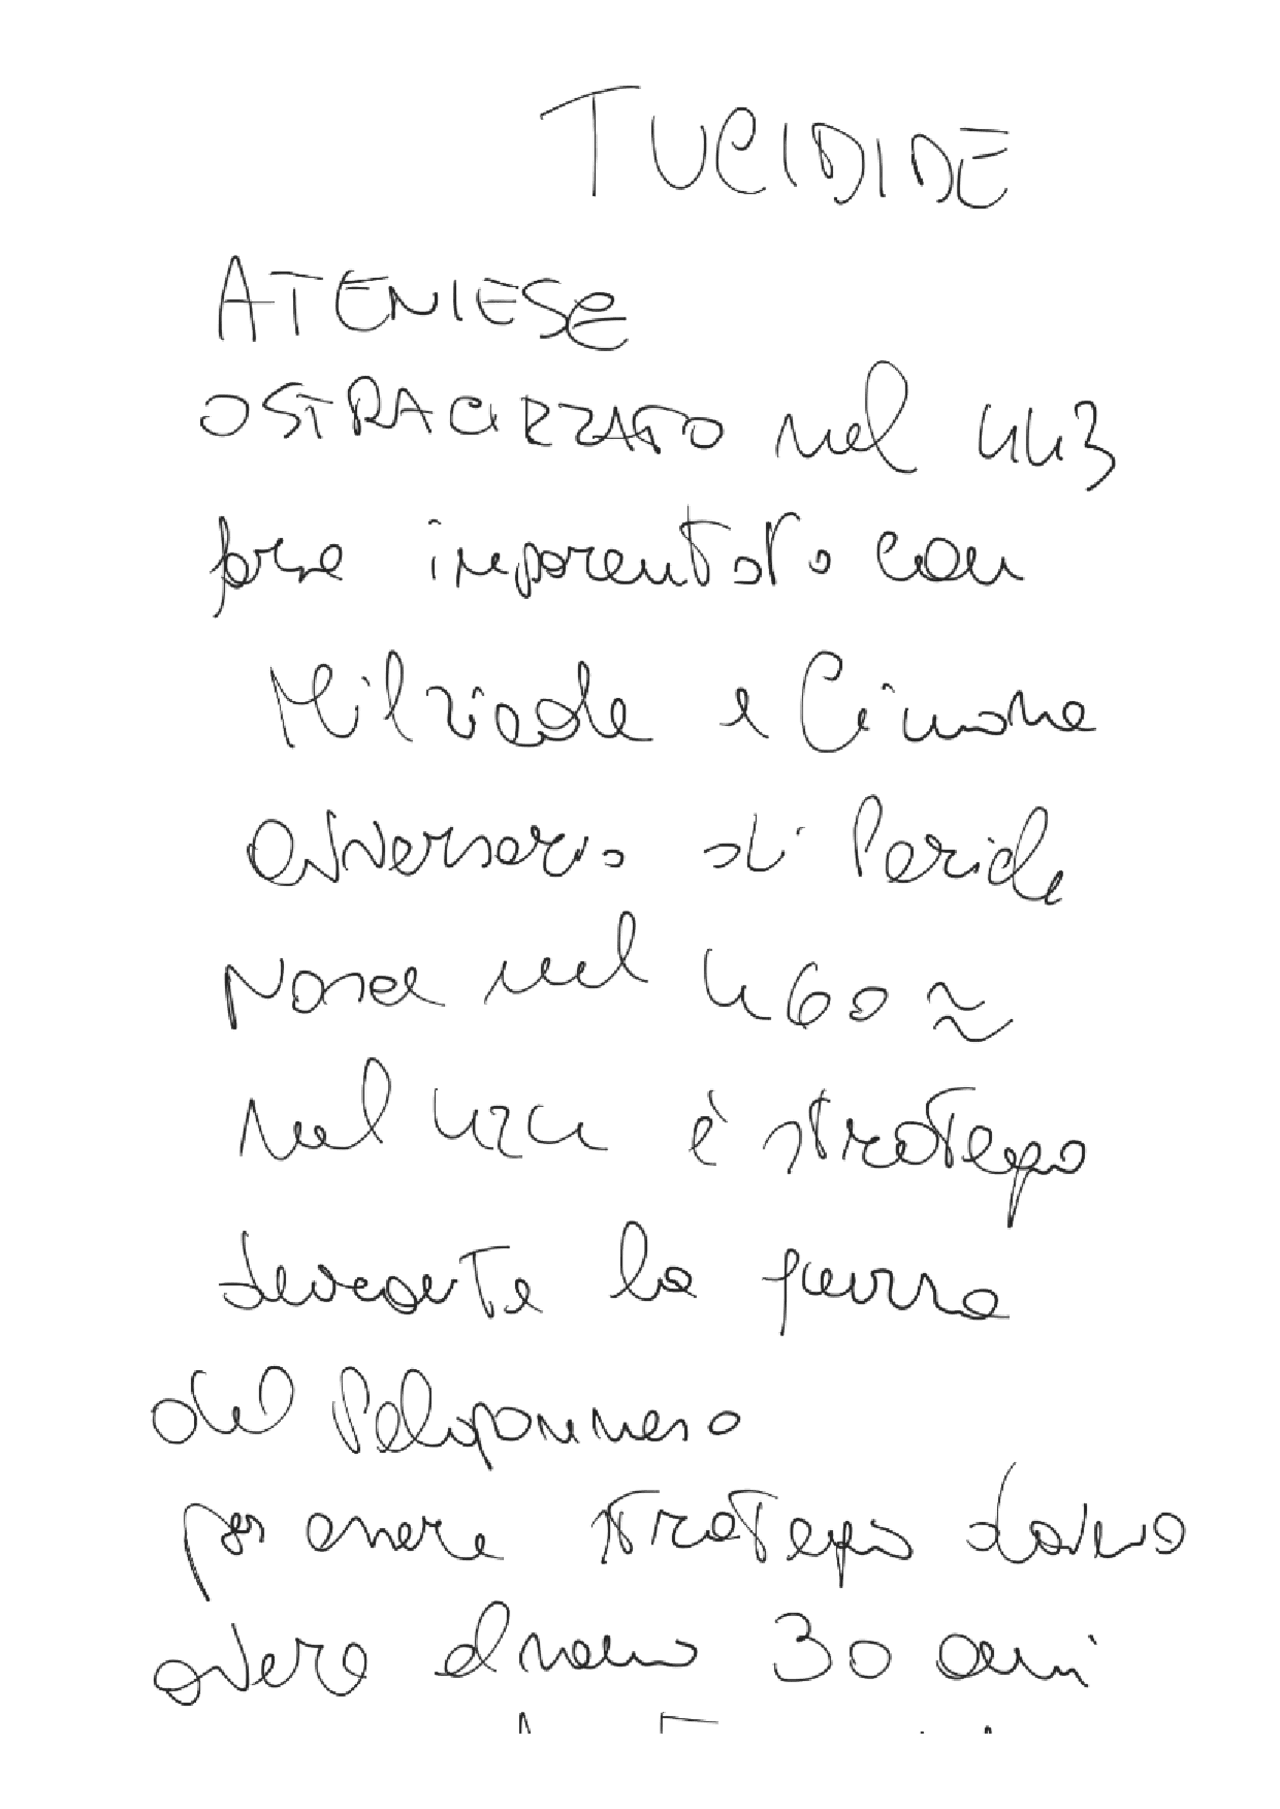 TUCIDIDE
ATENIESE
OSTRACIZZATO nel 443
forse imparentato con
Milziade e Cimone
avversario di Pericle
Nasce nel 460 ≈
nel 424 è stratego
durante la guerra
del Peloponneso
per essere stratego doveva
avere almeno 30 anni